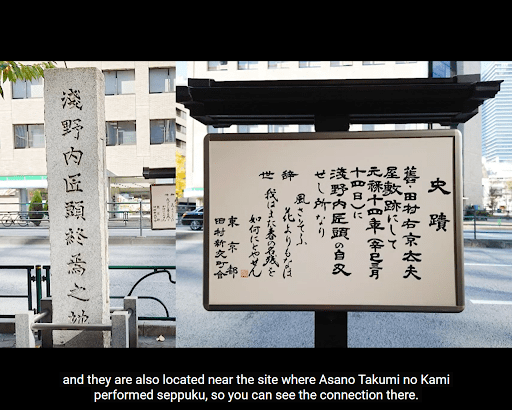 淺野内匠頭終焉之地
史蹟
舊・田村右京太夫
屋敷跡にして
元祿十四年(辛巳)三月
十四日に
淺野内匠頭の自刃
せし所なり
辞世
風さそふ
花よりもなほ
我はまた春の名残を
如何にとやせん
東京都
and they are also located near the site where Asano Takumi no Kami
performed seppuku, so you can see the connection there.